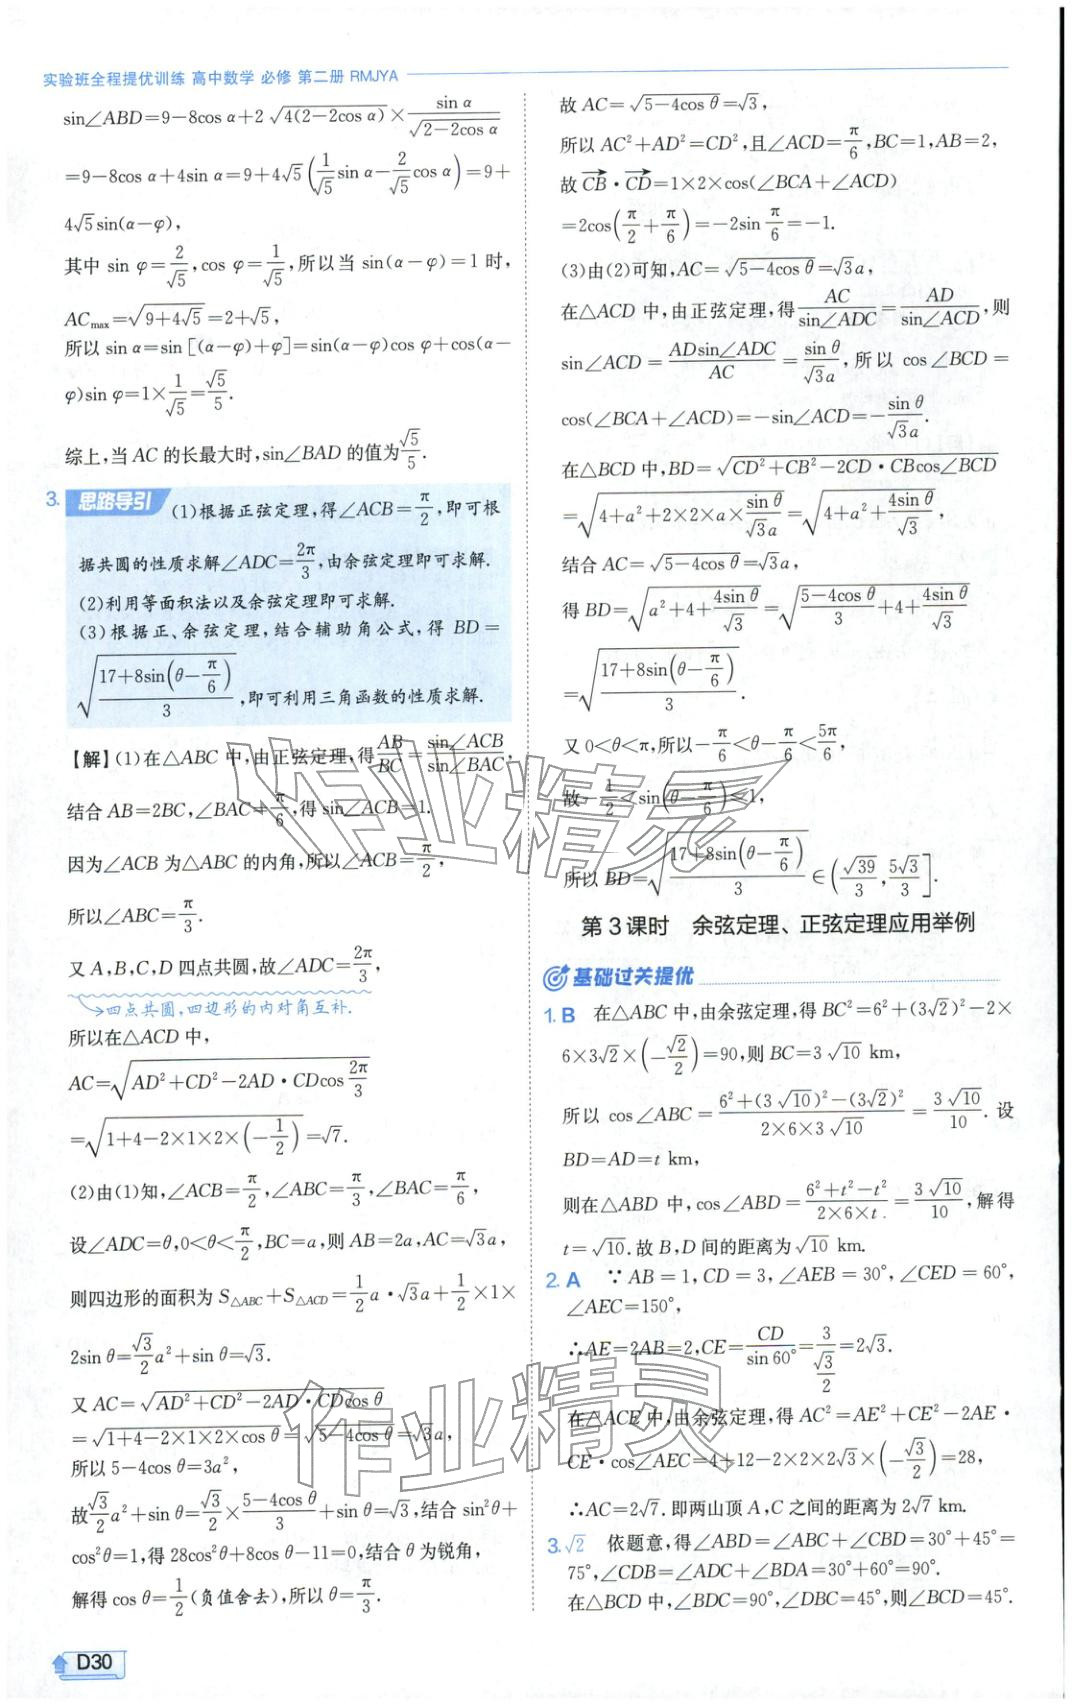 实验班全程提优训练 高中数学 必修 第二册 RMJYA
sin∠ABD=9-8cos α+2√(4(2-2cos α))×sin α/√(2-2cos α)
=9-8cos α+4sin α=9+4√5(1/√5 sin α-2/√5 cos α)=9+
4√5sin(α-φ),
其中 sin φ=2/√5,cos φ=1/√5,所以当 sin(α-φ)=1 时,
ACmax=√(9+4√5)=2+√5,
所以 sin α=sin[(α-φ)+φ]=sin(α-φ)cos φ+cos(α-
φ)sin φ=1×1/√5=√5/5.
综上,当 AC 的长最大时,sin∠BAD 的值为√5/5.
3. 思路导引 (1)根据正弦定理,得∠ACB=π/2,即可根
据共圆的性质求解∠ADC=2π/3,由余弦定理即可求解.
(2)利用等面积法以及余弦定理即可求解.
(3)根据正、余弦定理,结合辅助角公式,得 BD=
√((17+8sin(θ-π/6))/3),即可利用三角函数的性质求解.
【解】(1)在△ABC 中,由正弦定理,得AB/BC=sin∠ACB/sin∠BAC,
结合 AB=2BC,∠BAC=π/6,得 sin∠ACB=1.
因为∠ACB 为△ABC 的内角,所以∠ACB=π/2,
所以∠ABC=π/3.
又 A,B,C,D 四点共圆,故∠ADC=2π/3,
四点共圆,四边形的内对角互补.
所以在△ACD 中,
AC=√(AD²+CD²-2AD·CDcos 2π/3)
=√(1+4-2×1×2×(-1/2))=√7.
(2)由(1)知,∠ACB=π/2,∠ABC=π/3,∠BAC=π/6,
设∠ADC=θ,0<θ<π/2,BC=a,则 AB=2a,AC=√3a,
则四边形的面积为 S△ABC+S△ACD=1/2 a·√3a+1/2×1×
2sin θ=√3/2 a²+sin θ=√3.
又 AC=√(AD²+CD²-2AD·CDcos θ)
=√(1+4-2×1×2×cos θ)=√(5-4cos θ)=√3a,
所以 5-4cos θ=3a²,
故√3/2 a²+sin θ=√3/2×(5-4cos θ)/3+sin θ=√3,结合 sin²θ+
cos²θ=1,得 28cos²θ+8cos θ-11=0,结合 θ 为锐角,
解得 cos θ=1/2(负值舍去),所以 θ=π/3.
故 AC=√(5-4cos θ)=√3,
所以 AC²+AD²=CD²,且∠ACD=π/6,BC=1,AB=2,
故 CB→·CD→=1×2×cos(∠BCA+∠ACD)
=2cos(π/2+π/6)=-2sin π/6=-1.
(3)由(2)可知,AC=√(5-4cos θ)=√3a,
在△ACD 中,由正弦定理,得 AC/sin∠ADC=AD/sin∠ACD,则
sin∠ACD=ADsin∠ADC/AC=sin θ/√3a,所以 cos∠BCD=
cos(∠BCA+∠ACD)=-sin∠ACD=-sin θ/√3a.
在△BCD 中,BD=√(CD²+CB²-2CD·CBcos∠BCD)
=√(4+a²+2×2×a×sin θ/√3a)=√(4+a²+4sin θ/√3),
结合 AC=√(5-4cos θ)=√3a,
得 BD=√(a²+4+4sin θ/√3)=√((5-4cos θ)/3+4+4sin θ/√3)
=√((17+8sin(θ-π/6))/3).
又 0<θ<π,所以-π/6<θ-π/6<5π/6,
故-1/2<sin(θ-π/6)≤1,
所以 BD=√((17+8sin(θ-π/6))/3)∈(√39/3,5√3/3].
第 3 课时 余弦定理、正弦定理应用举例
基础过关提优
1. B 在△ABC 中,由余弦定理,得 BC²=6²+(3√2)²-2×
6×3√2×(-√2/2)=90,则 BC=3√10 km,
所以 cos∠ABC=(6²+(3√10)²-(3√2)²)/(2×6×3√10)=3√10/10. 设
BD=AD=t km,
则在△ABD 中,cos∠ABD=(6²+t²-t²)/(2×6×t)=3√10/10,解得
t=√10. 故 B,D 间的距离为√10 km.
2. A ∵AB=1,CD=3,∠AEB=30°,∠CED=60°,
∠AEC=150°,
∴AE=2AB=2,CE=CD/sin 60°=3/(√3/2)=2√3.
在△ACE 中,由余弦定理,得 AC²=AE²+CE²-2AE·
CE·cos∠AEC=4+12-2×2×2√3×(-√3/2)=28,
∴AC=2√7. 即两山顶 A,C 之间的距离为 2√7 km.
3. √2 依题意,得∠ABD=∠ABC+∠CBD=30°+45°=
75°,∠CDB=∠ADC+∠BDA=30°+60°=90°.
在△BCD 中,∠BDC=90°,∠DBC=45°,则∠BCD=45°.
D30
作业精灵
作业精灵